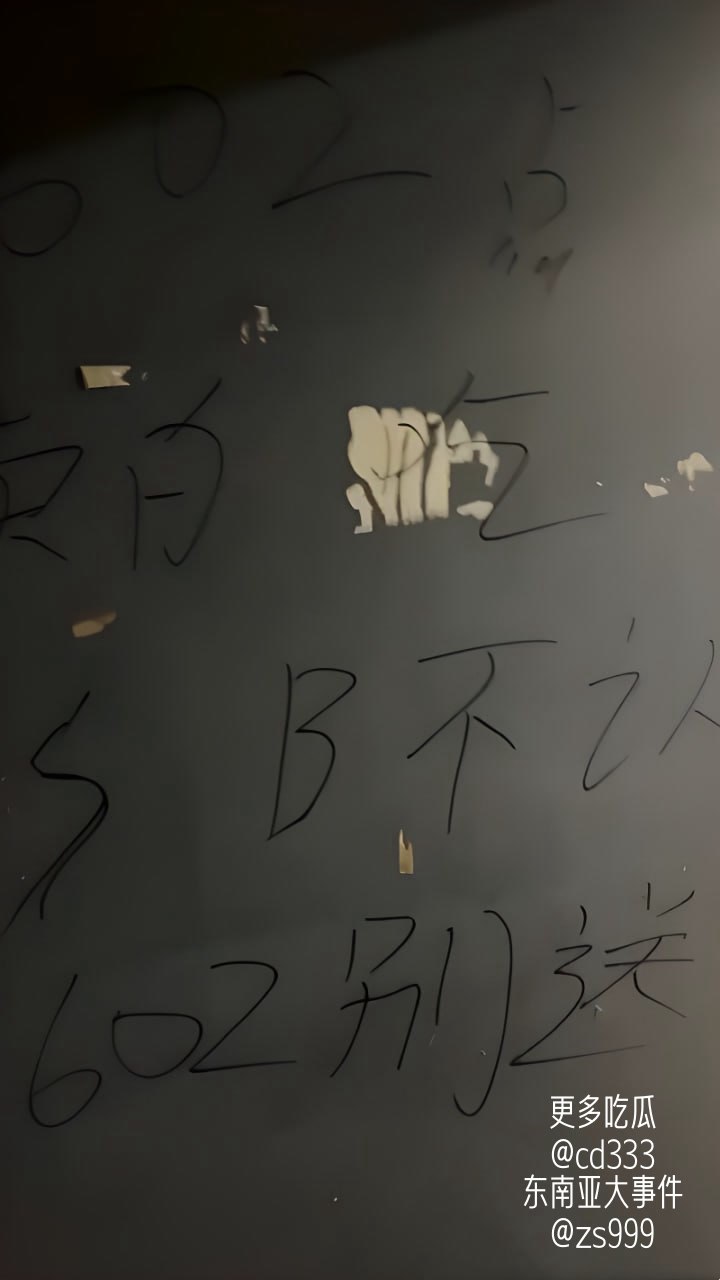 602点
的 吃
S B不认
602别送
更多吃瓜
@cd333
东南亚大事件
@zs999